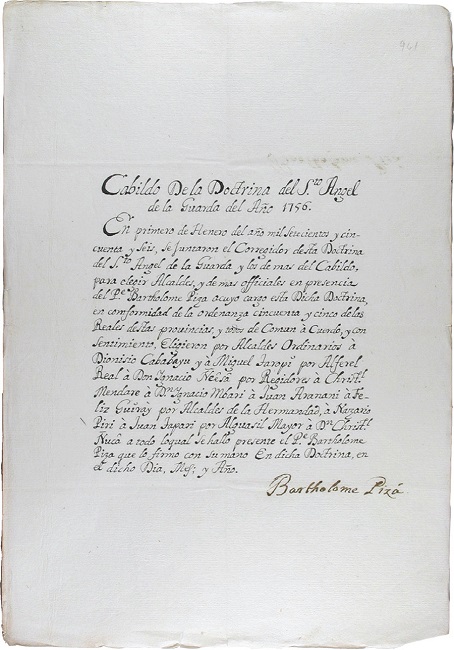 941
Cabildo De la Doctrina del S.to Angel
de la Guarda del Año 1756.
En primero de Henero del año mil setecientos y cin-
cuenta y Seis, se juntaron el Corregidor desta Doctrina
del S.to Angel de la Guarda y los de mas del Cabildo,
para elegir Alcaldes, y de mas officiales en presencia
del P.e Bartholome Piza acuyo cargo esta Dicha Doctrina,
en conformidad de la ordenanza cincuenta y cinco de las
Reales destas provincias, y todos de Comun à Cuerdo, y con
sentimiento, Eligieron por Alcaldes Ordinarios à
Dionisio Cababayu y à Miguel Taropi por Alferel
Real à Don Ignacio Neesa por Regidores à Christ.l
Mendare à D.n Ignacio Mbari à Juan Aranani à Fe-
liz Guiray por Alcaldes de la Hermandad, à Nazario
Piri à Juan Iapari por Alguasil Mayor à D.n Christ.l
Ñuca a todo loqual se hallo presente el P.e Bartholome
Piza que lo firmo con su mano En dicha Doctrina, en
el dicho Dia, Mes; y Año.
Bartholome Pizá